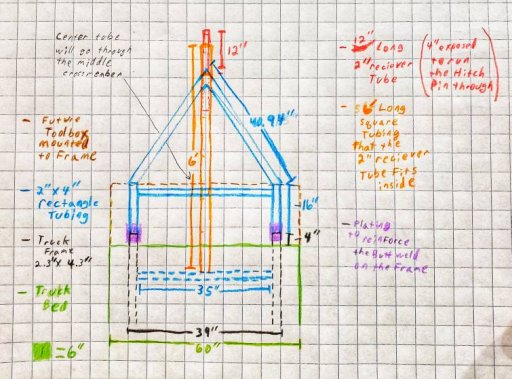 Center tube
will go through
the middle
crossmember
12"
40.94"
6'
16"
4"
35"
39"
60"
- Future
Toolbox
mounted
to Frame
- 2" x 4"
rectangle
Tubing
- Truck
Frame
2.3" x 4.3"
- Truck
Bed
= 6"
- 12" Long
2" reciever
Tube
(4" exposed
to run
the Hitch
Pin through)
Long
Square
Tubing
that the
2" reciever
Tube Fits
inside
- Plating
to reinforce
the Butt weld
on the Frame